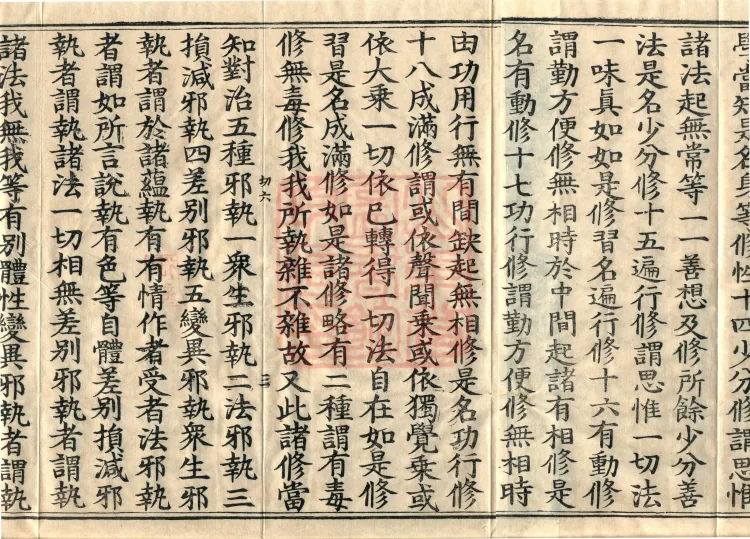 學當知是名具等修性十四少分修謂思惟
諸法起無常等一一善想及修所餘少分善
法是名少分修十五遍行修謂思惟一切法
一味真如如是修習名遍行修十六有動修
謂勤方便修無相時於中間起諸有相修是
名有動修十七功行修謂勤方便修無相時
由功用行無有間缺起無相修是名功行修
十八成滿修謂或依聲聞乘或依獨覺乘或
依大乘一切依已轉得一切法自在如是修
習是名成滿修如是諸修略有二種謂有毒
修無毒修我我所執雜不雜故又此諸修當
切六
三
知對治五種邪執一眾生邪執二法邪執三
損減邪執四差別邪執五變異邪執眾生邪
執者謂於諸蘊執有有情作者受者法邪執
者謂如所言說執有色等自體差別損減邪
執者謂執諸法一切相無差別邪執者謂執
諸法我無我等有別體性變異邪執者謂執